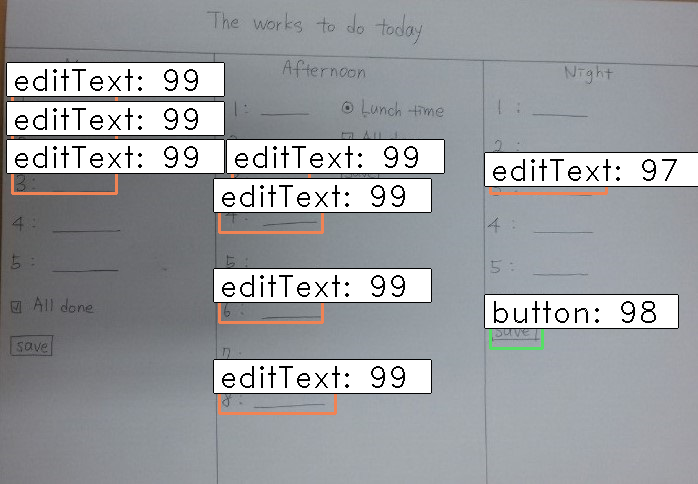 The works to do today
editText: 99
editText: 99
editText: 99
3 :
4 :
5 :
All done
save
Afternoon
1 :
Lunch time
All
editText: 99
editText: 99
4 :
5 :
editText: 99
6 :
7 :
editText: 99
8 :
Night
1 :
2 :
editText: 97
4 :
5 :
button: 98
save